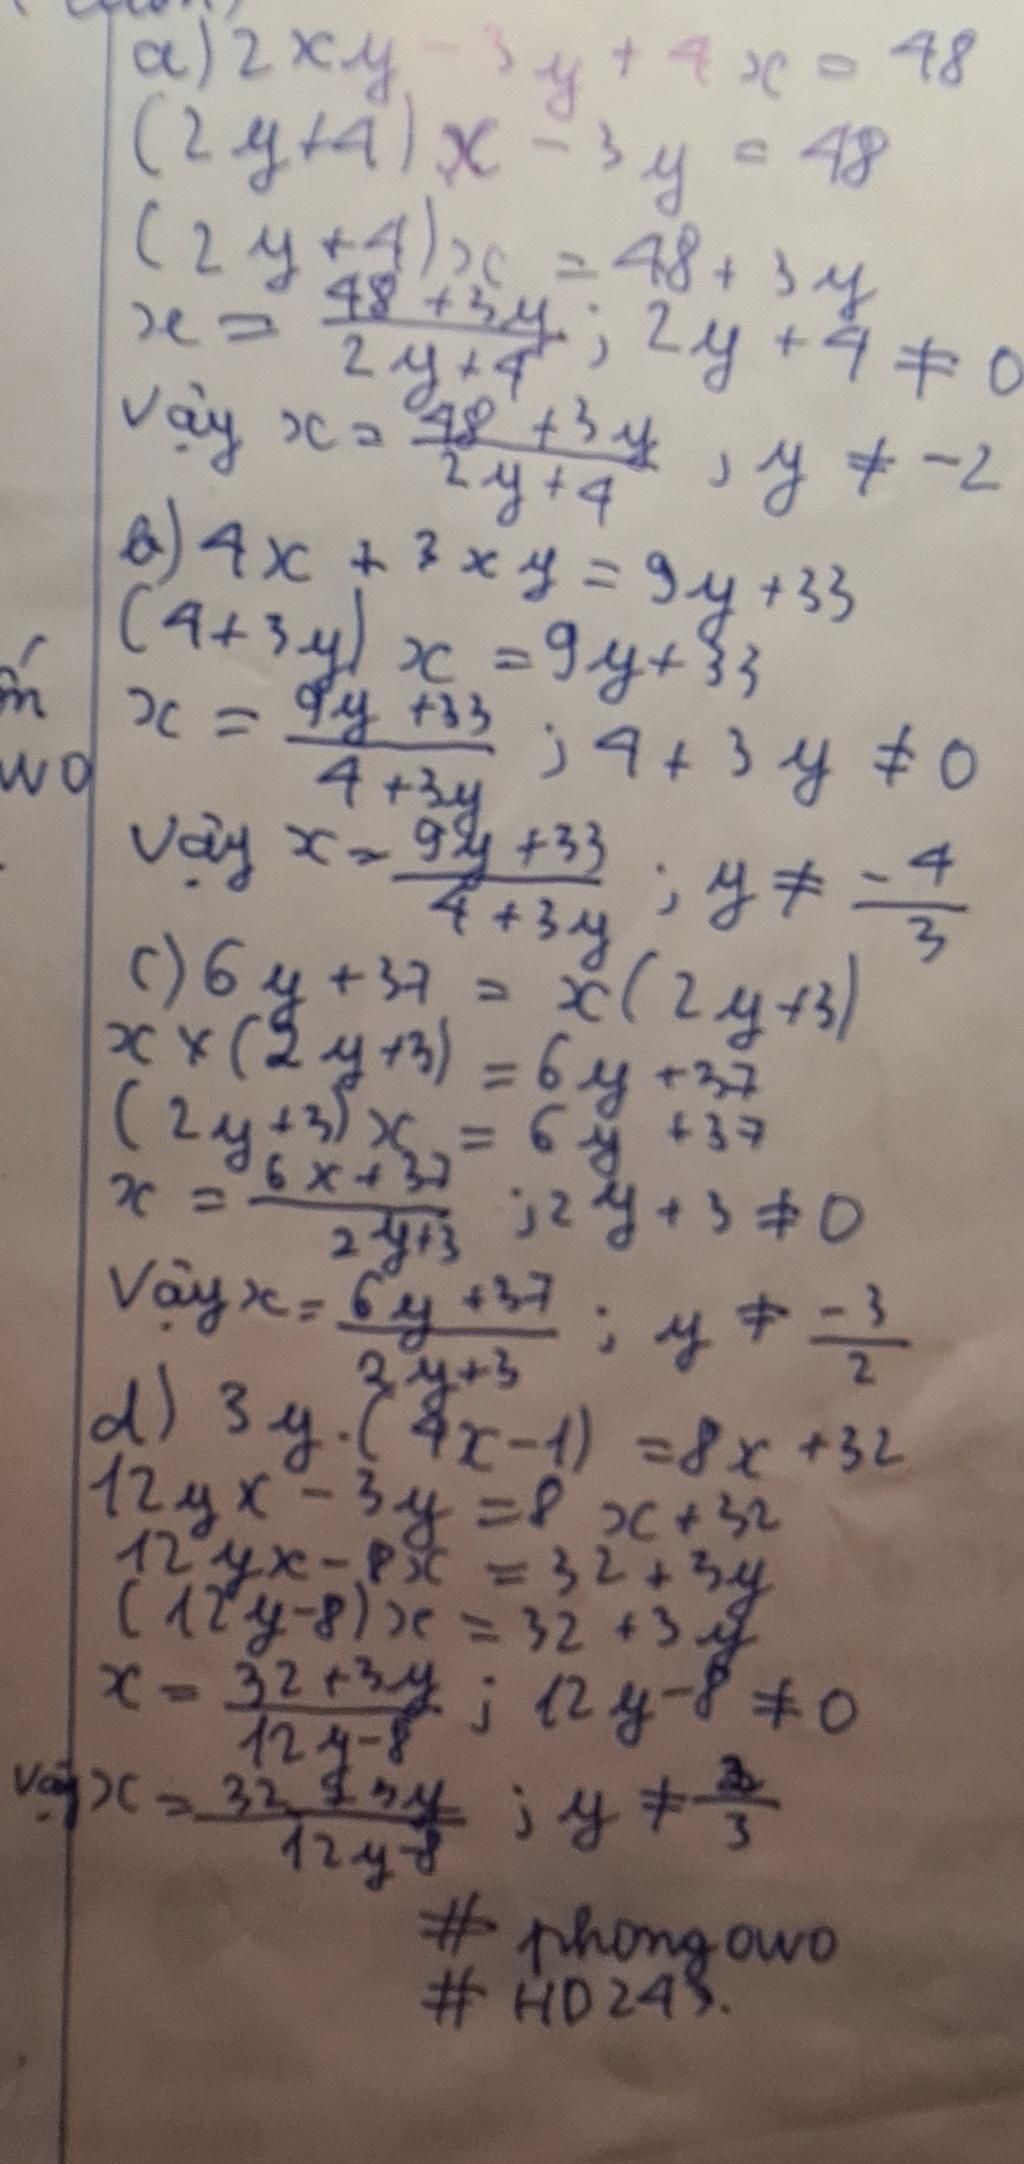 a) 2xy - 3y + 4x = 48
(2y+4)x - 3y = 48
(2y+4)x = 48 + 3y
x = (48+3y)/(2y+4) ; 2y + 4 ≠ 0
Vậy x = (48+3y)/(2y+4) ; y ≠ -2
b) 4x + 3xy = 9y + 33
(4+3y)x = 9y + 33
x = (9y+33)/(4+3y) ; 4 + 3y ≠ 0
Vậy x = (9y+33)/(4+3y) ; y ≠ -4/3
c) 6y + 37 = x(2y+3)
x × (2y+3) = 6y + 37
(2y+3)x = 6y + 37
x = (6x+37)/(2y+3) ; 2y + 3 ≠ 0
Vậy x = (6y+37)/(2y+3) ; y ≠ -3/2
d) 3y.(4x-1) = 8x + 32
12yx - 3y = 8x + 32
12yx - 8x = 32 + 3y
(12y-8)x = 32 + 3y
x = (32+3y)/(12y-8) ; 12y - 8 ≠ 0
Vậy x = (32 3y)/(12y-8) ; y ≠ 2/3
# phongowo
# HD245.